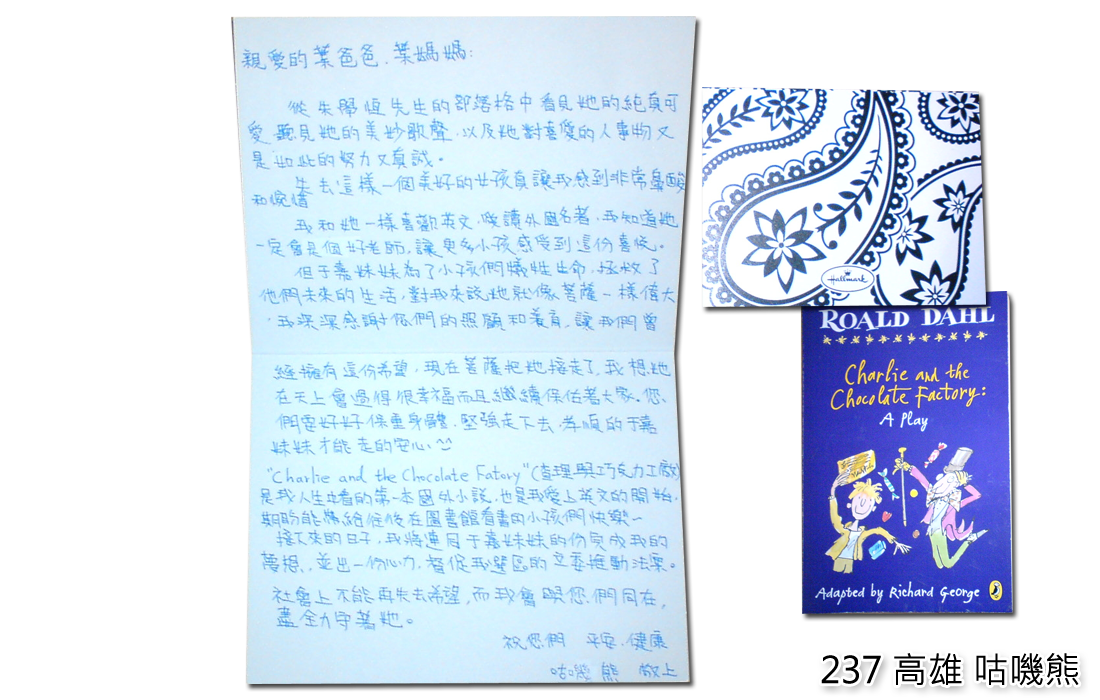 親愛的葉爸爸、葉媽媽:
從朱學恆先生的部落格中看見她的純真可
愛、聽見她的美妙歌聲、以及她對喜愛的人事物又
是如此的努力又真誠。
失去這樣一個美好的女孩真讓我感到非常鼻酸
和惋惜
我和她一樣喜歡英文,愛讀外國名著,我知道她
一定會是個好老師,讓更多小孩感受到這份喜悅。
但于嘉妹妹為了小孩們犧牲生命,拯救了
他們未來的生活,對我來說她就像菩薩一樣偉大
,我深深感謝您們的照顧和養育,讓我們曾
經擁有這份希望,現在菩薩把她接走了,我想她
在天上會過得很幸福而且繼續保佑著大家。您
們要好好保重身體,堅強走下去,孝順的于嘉
妹妹才能走的安心^^
"Charlie and the Chocolate Fatory"(查理與巧克力工廠)
是我人生中看的第一本國外小說,也是我愛上英文的開始,
期盼能帶給往後在圖書館看書的小孩們快樂~
接下來的日子,我將連同于嘉妹妹的份完成我的
夢想,並出一份心力,督促我選區的立委推動法案。
社會上不能再失去希望,而我會與您們同在,
盡全力守著她。
祝您們 平安、健康
咕嘰熊 敬上
Hallmark
ROALD DAHL
Charlie and the
Chocolate Factory:
A Play
Adapted by Richard George
237 高雄 咕嘰熊